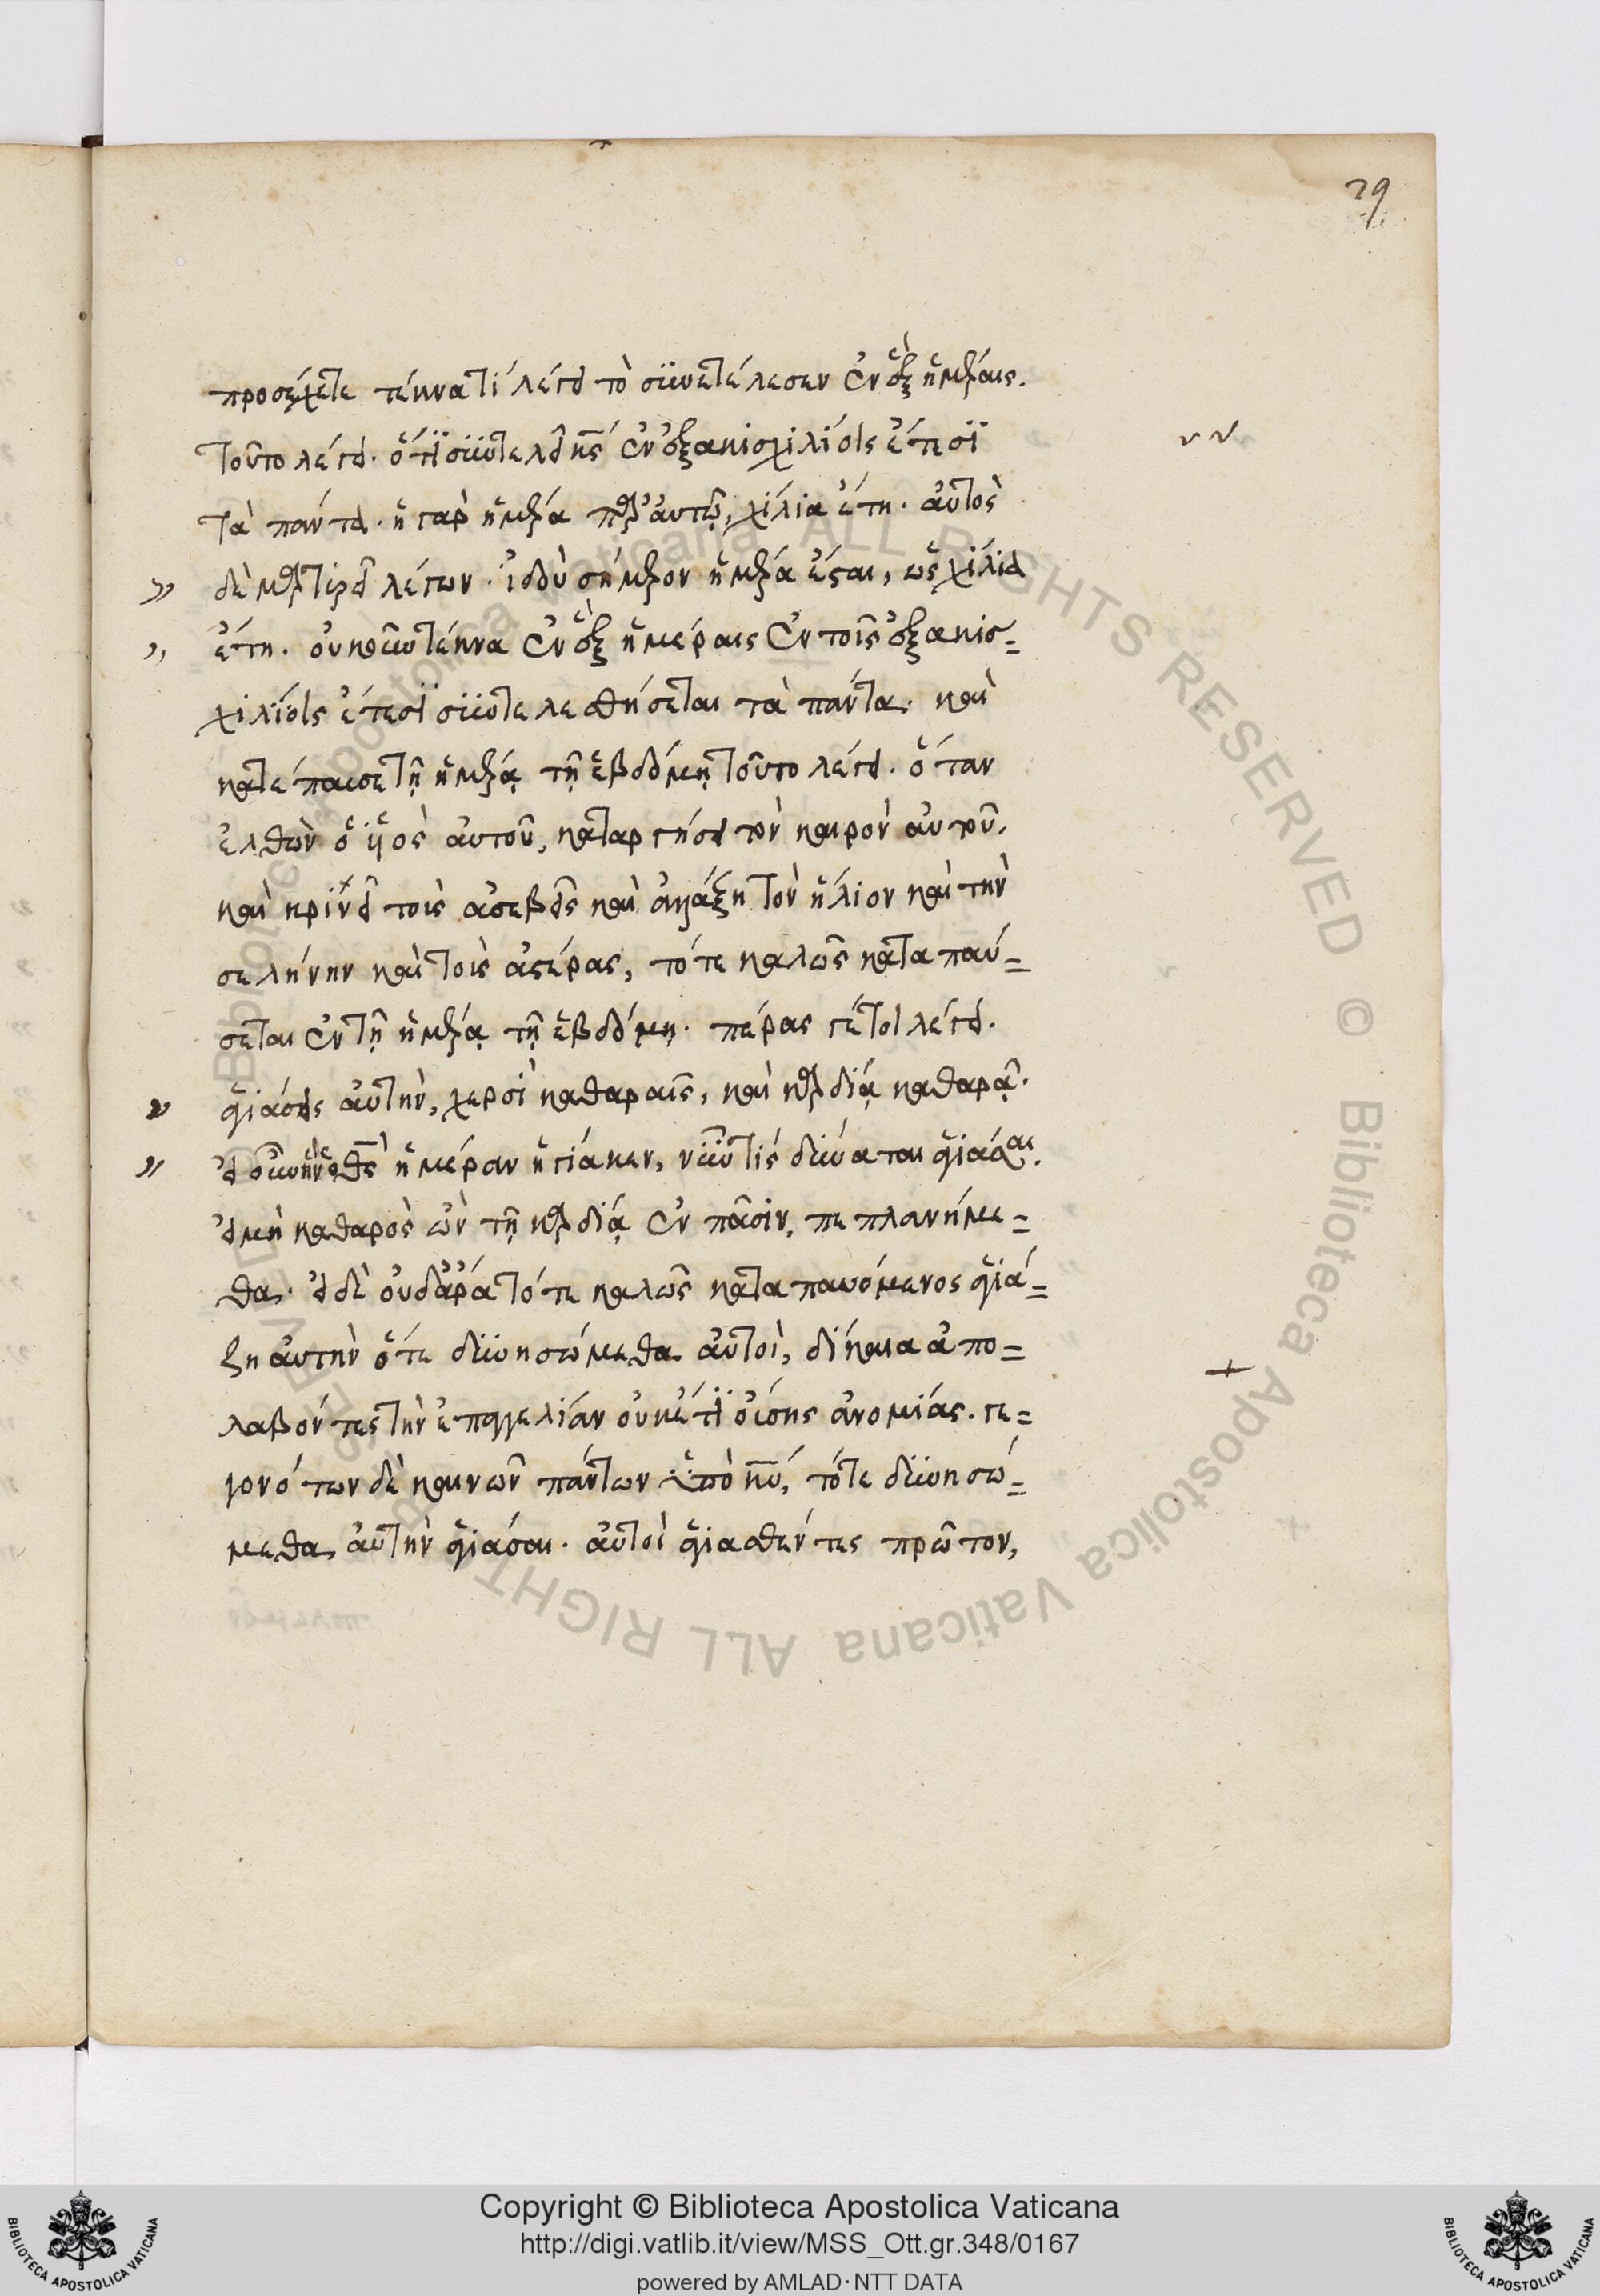 29
προσέχετε τέκνα τί λέγει τὸ συνετέλεσεν ἐν ἓξ ἡμέραις.
τοῦτο λέγει. ὅτι συντελεῖ κς ἐν ἑξακισχιλίοις ἔτεσι
τὰ πάντα. ἡ γὰρ ἡμέρα παρ' αὐτῷ, χίλια ἔτη. αὐτὸς
δὲ μαρτυρεῖ λέγων. ἰδοὺ σήμερον ἡμέρα ἔσται, ὡς χίλια
ἔτη. οὐκοῦν τέκνα ἐν ἓξ ἡμέραις ἐν τοῖς ἑξακισ=
χιλίοις ἔτεσι συντελεσθήσεται τὰ πάντα. καὶ
κατέπαυσε τῇ ἡμέρᾳ τῇ ἑβδόμῃ τοῦτο λέγει. ὅταν
ἐλθὼν ὁ ὑιὸς αὐτοῦ, καταργήσει τὸν καιρὸν αὐτοῦ.
καὶ κρινεῖ τοὺς ἀσεβεῖς καὶ ἀλλάξῃ τὸν ἥλιον καὶ τὴν
σελήνην καὶ τοὺς ἀστέρας, τότε καλῶς καταπαύ=
σεται ἐν τῇ ἡμέρᾳ τῇ ἑβδόμῃ. πέρας γέ τοι λέγει.
ἁγιάσεις αὐτὴν, χερσὶ καθαραῖς, καὶ καρδίᾳ καθαρᾷ.
εἰ οὖν ἣν ὁ θς ἡμέραν ἡγίακεν, νῦν τίς δύναται ἁγιάσαι.
εἰ μὴ καθαρὸς ὢν τῇ καρδίᾳ ἐν πᾶσιν, πεπλανήμε=
θα. εἰ δὲ οὐδ' ἄρα τότε καλῶς καταπαυόμενος ἁγιά=
ζῃ αὐτὴν ὅτε δυνησώμεθα αὐτοὶ, δίκαια ἀπο=
λαβόντες τὴν ἐπαγγελίαν οὐκέτι οὔσης ἀνομίας. γε=
γονότων δὲ καινῶν πάντων ὑπὸ κυ, τότε δυνησώ=
μεθα αὐτὴν ἁγιάσαι. αὐτοὶ ἁγιασθέντες πρῶτον,
Copyright © Biblioteca Apostolica Vaticana
http://digi.vatlib.it/view/MSS_Ott.gr.348/0167
powered by AMLAD·NTT DATA